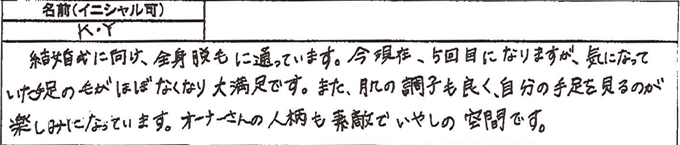 名前(イニシャル可)
K・Y
結婚式に向け、全身脱毛に通っています。今現在、5回目になりますが、気になって
いた手足の毛がほぼなくなり大満足です。また、肌の調子も良く、自分の手足を見るのが
楽しみになっています。オーナーさんの人柄も素敵でいやしの空間です。